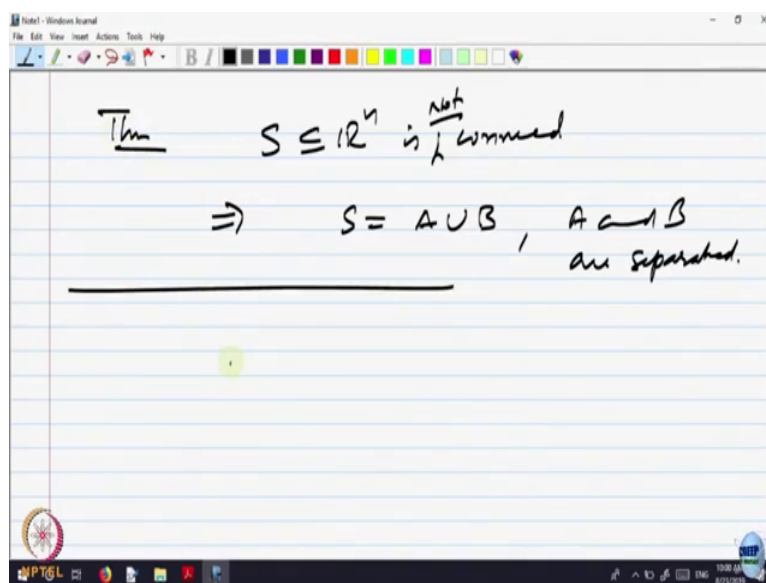 Note1 - Windows Journal
File Edit View Insert Actions Tools Help
B I
Not
Thm S ⊆ IRⁿ is connected
⇒ S = A ∪ B, A and B
are separated.
NPTEL
ENG
10:00 AM
8/23/2019